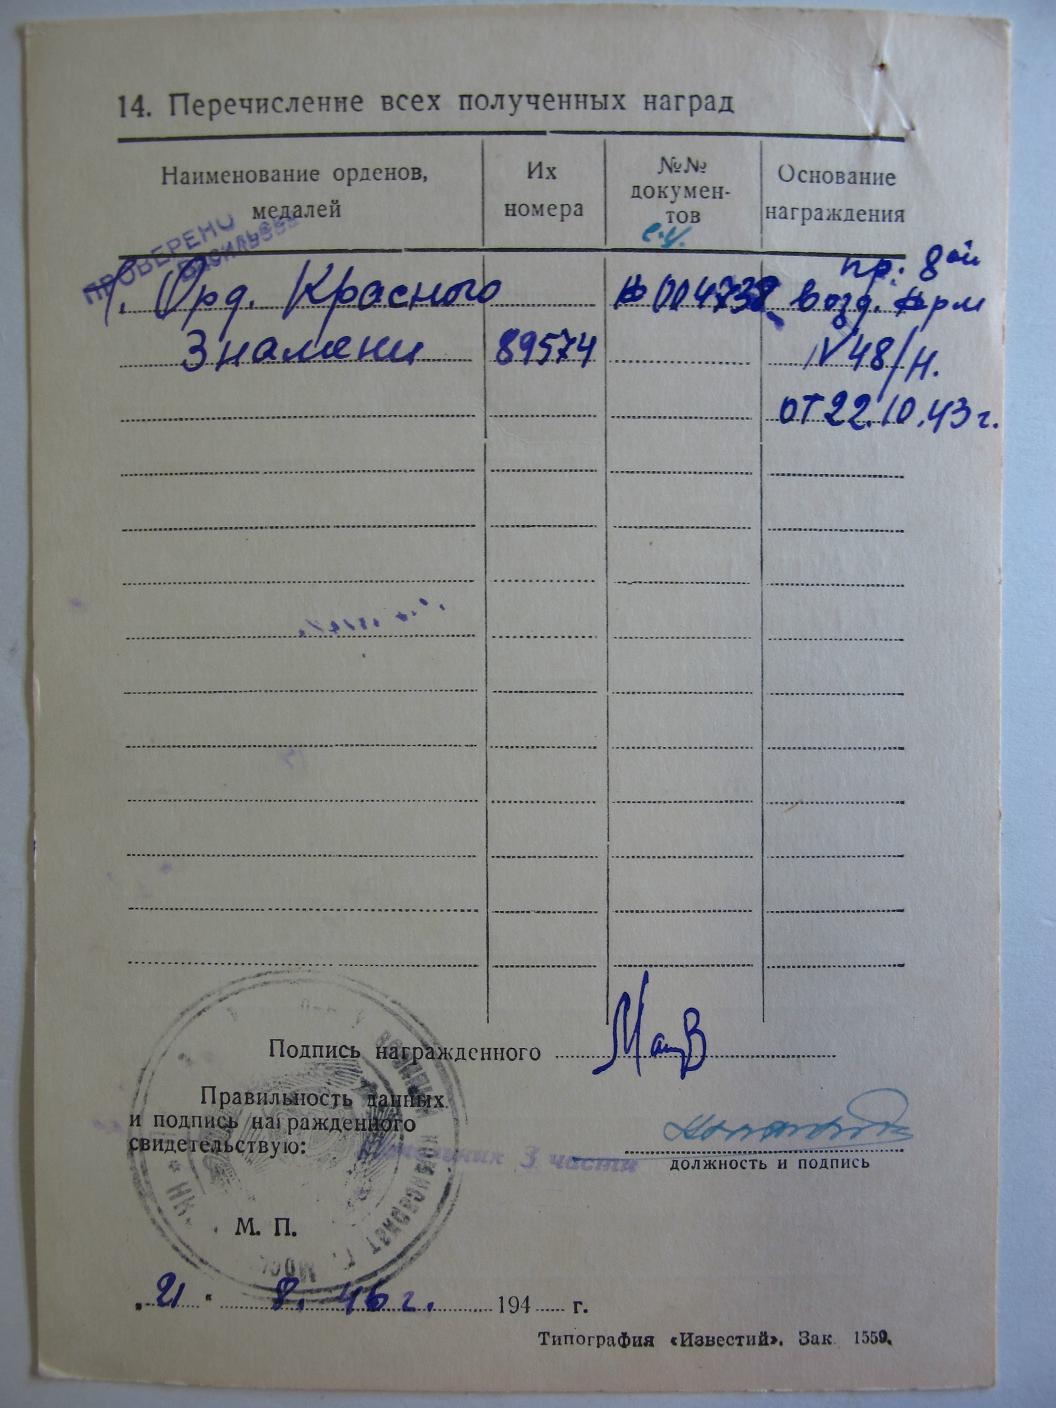 14. Перечисление всех полученных наград
Наименование орденов, медалей
Их номера
№№ документов
Основание награждения
с.у.
ПРОВЕРЕНО
1. Орд. Красного
Знамени
89574
№ 004738
пр. 8ой
возд. Арм
№ 48/н.
от 22.10.43 г.
Подпись награжденного
Правильность данных
и подпись награжденного
свидетельствую:
Начальник 3 части
должность и подпись
М. П.
„21“ 8. 46 г. 194 г.
Типография «Известий». Зак. 1559.